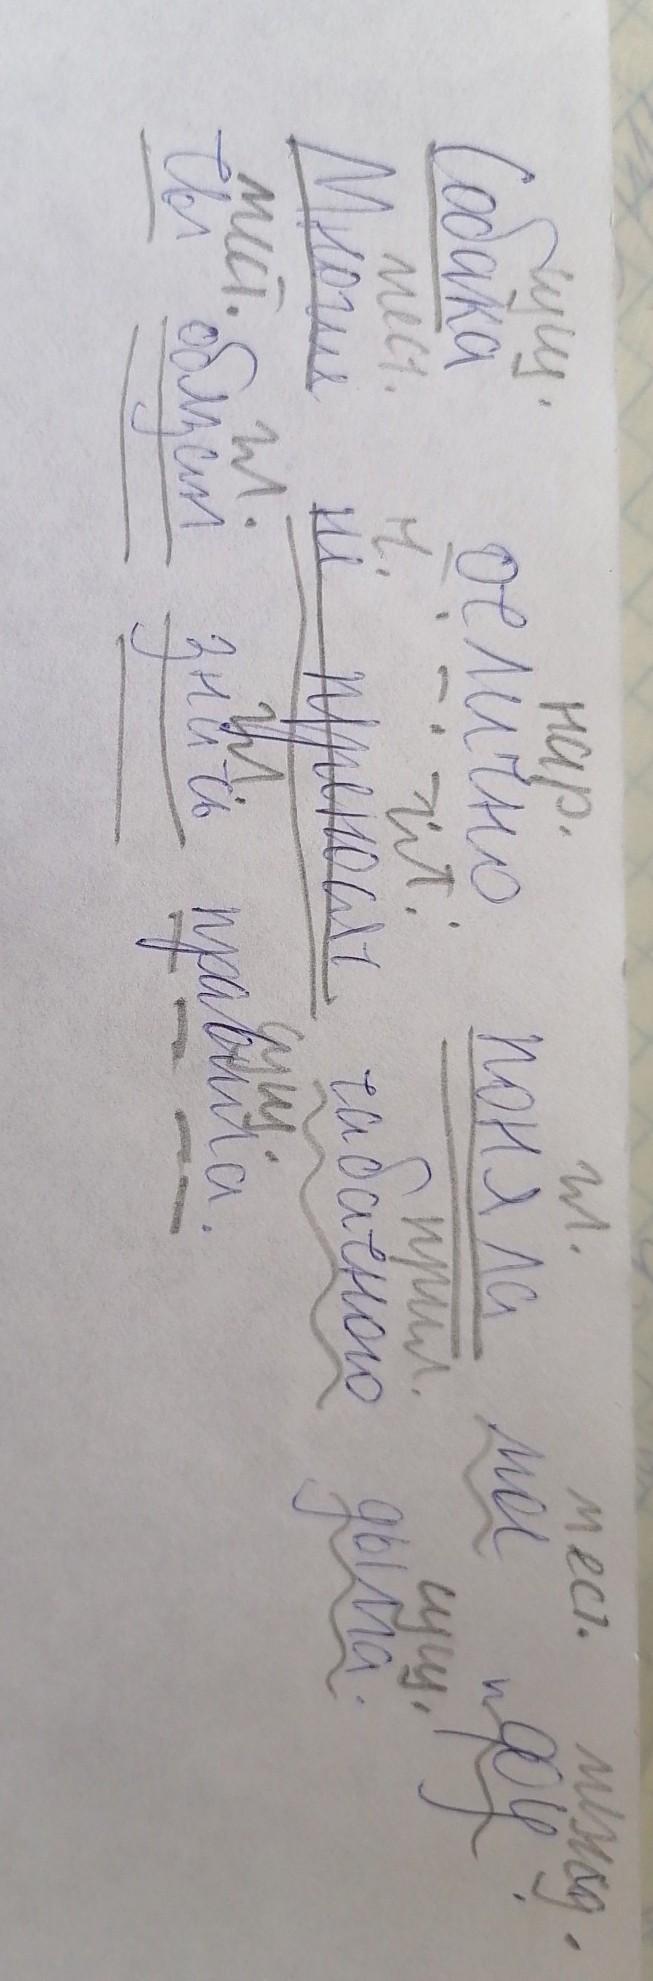 сущ. нар. гл. мест. межд.
Собака отлично поняла моё
мест. ч. гл. прил. сущ.
Многие не переносят табачного дыма.
мест. гл. гл. сущ.
ты обязан знать правила.